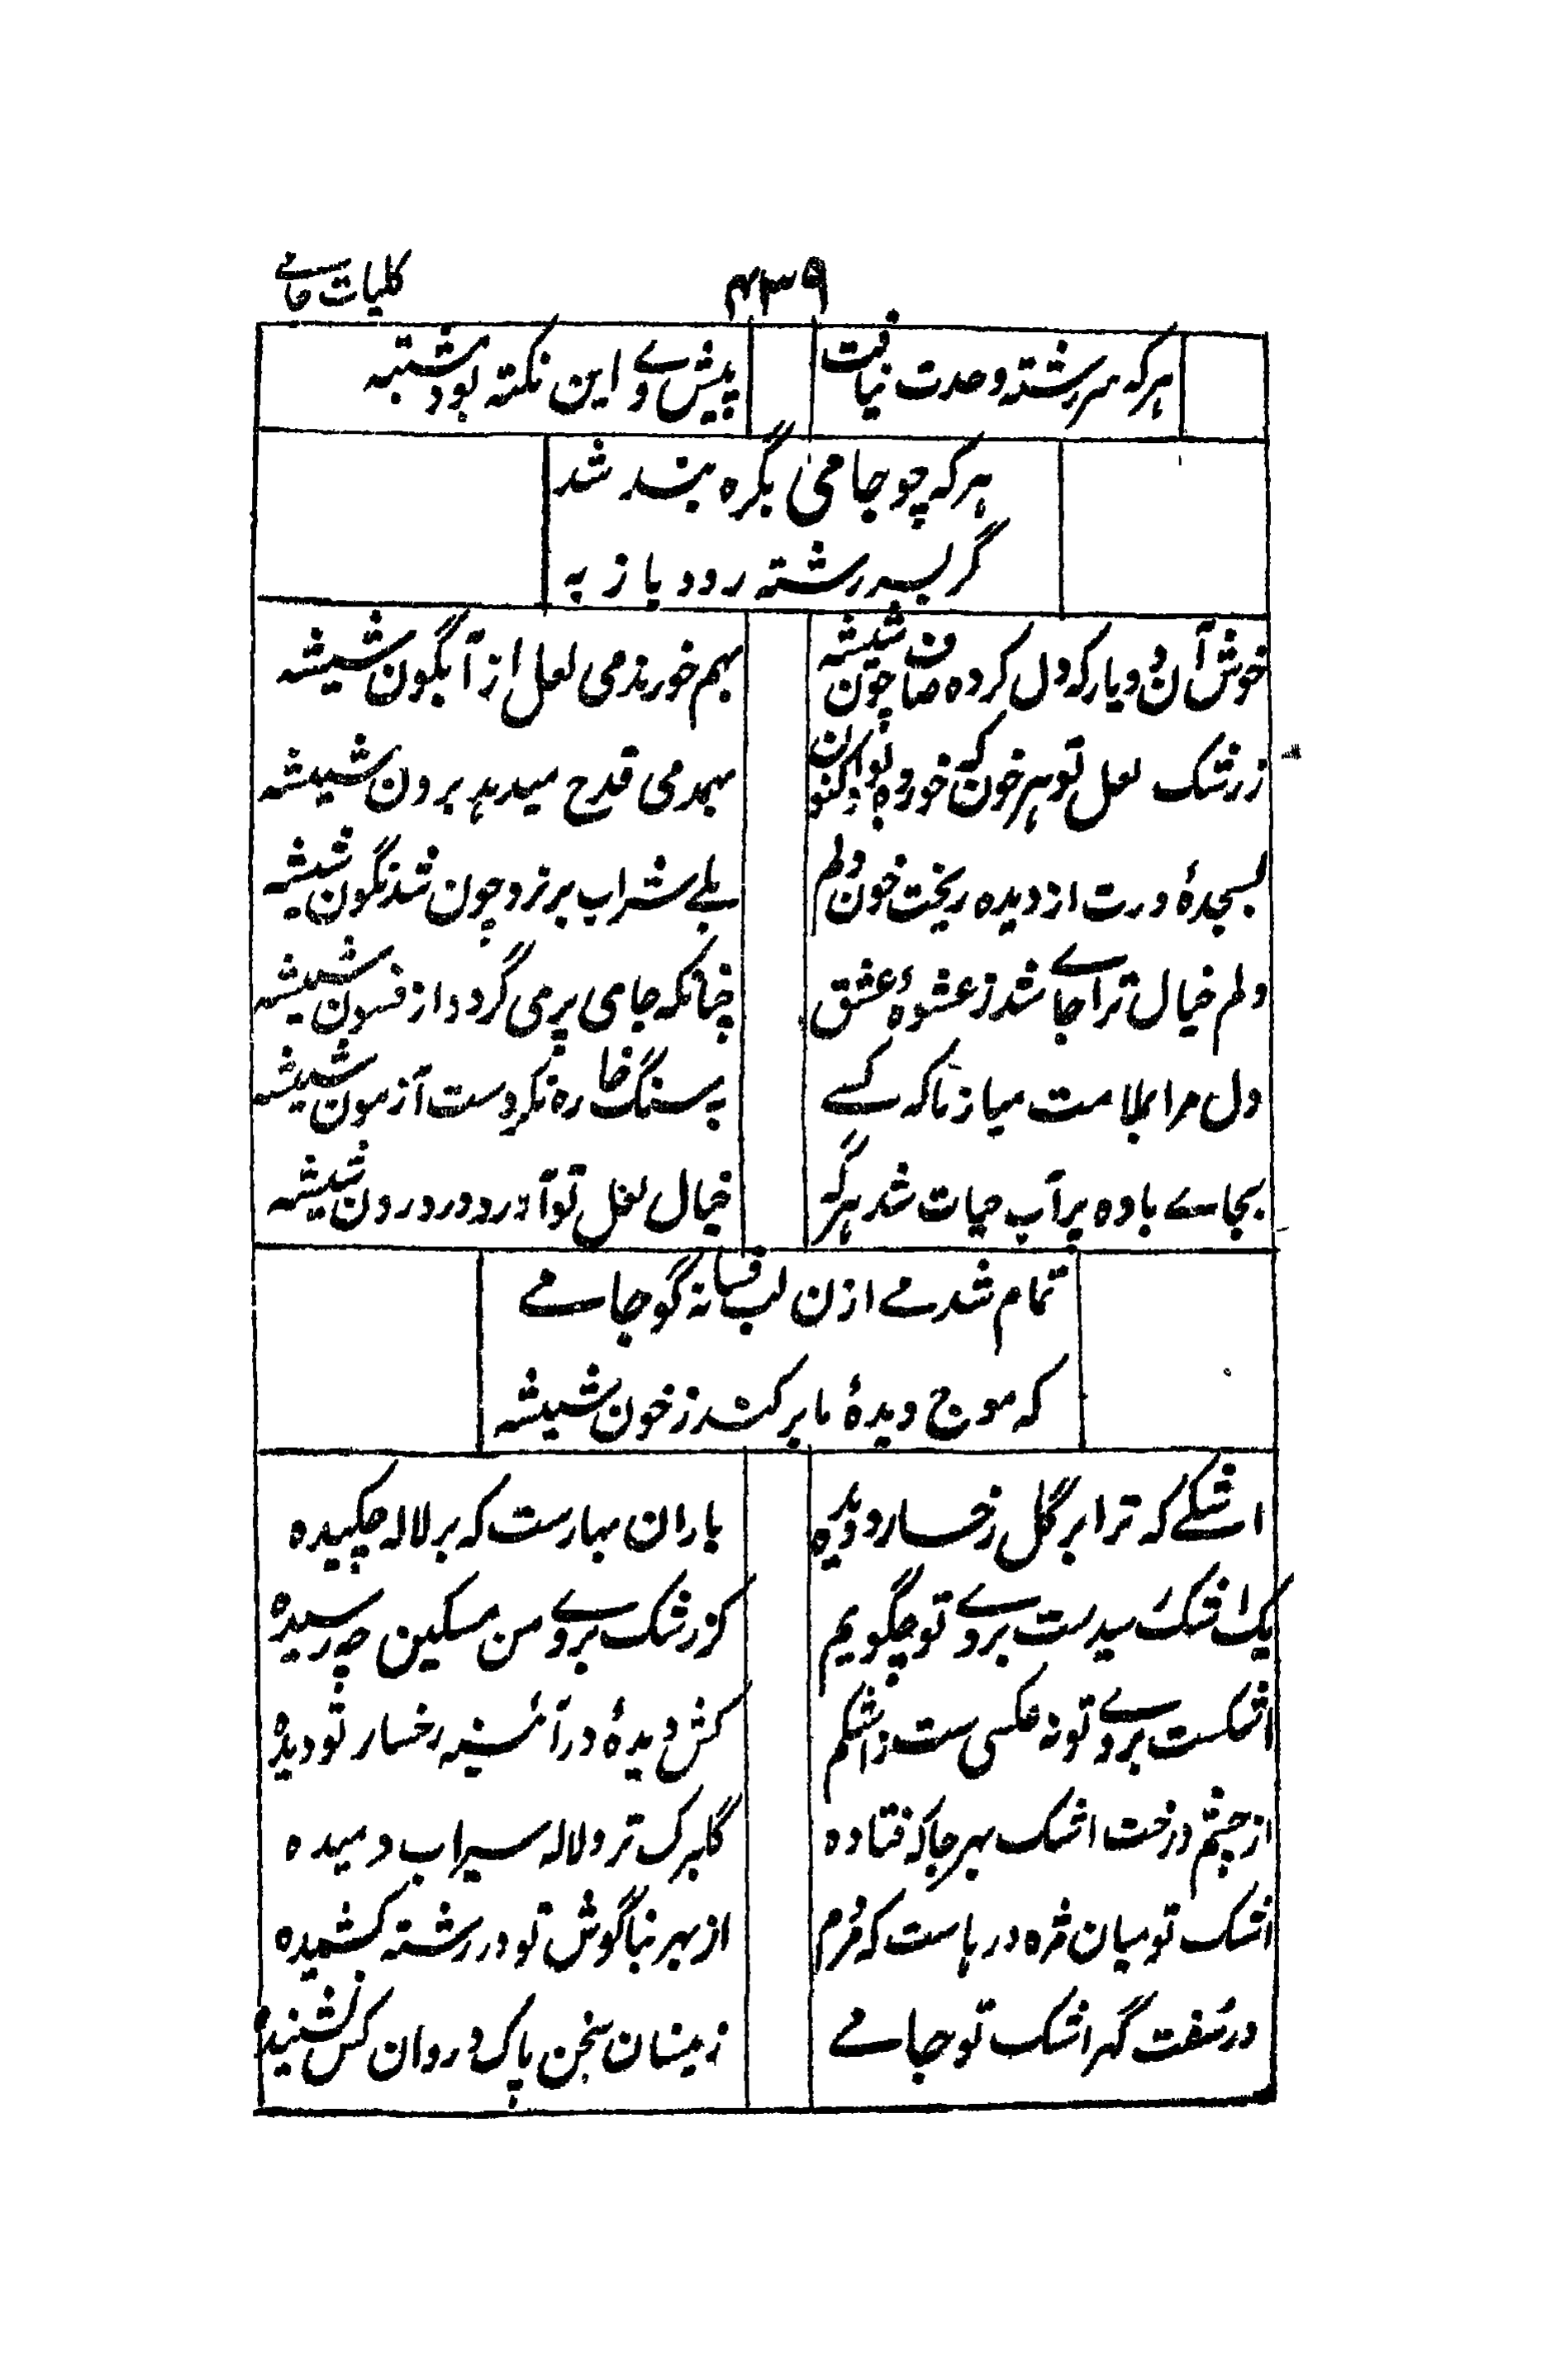 ۴۳۹
کلیات جامے
هرکه سررشته وحدت نیافت
پیش وے این نکته بود مشتبه
هرکه چو جامی بگره بند شد
گر بسر رشته رود باز به
خوش آن دو یار که دل کرده صاف چون شیشه
بهم خورند می لعل از آبگون شیشه
ز رشک لعل تو هر خون که خورده بود اکنون
بهمدمی قدح میدهد برون شیشه
بسجدۀ درت از دیده ریخت خون دلم
بلے شراب بریزد چون شد نگون شیشه
دلم خیال ترا جاے شد ز عشوۀ عشق
چنانکه جامی پر می گردد از فسون شیشه
دل مرا بملامت میازما که کسے
به سنگ خاره نکردست آزمون شیشه
بجاے باده پر آب حیات شد هرگه
خیال لعل تو آورد در درون شیشه
تمام شد مے ازن لب فسانه گو جامے
که موج دیدۀ ما پر کند ز خون شیشه
اشکے که ترا بر گل رخسار دویده
باران بهارست که بر لاله چکیده
یک اشک رسیدست بروے تو چگویم
کز رشک بروے من مسکین چه رسیده
اشکست بروے تو نه عکسی ست ز اشکم
کش دیدۀ در آئینه رخسار تو دیده
از چشم و رخت اشک بهر جا که فتاده
گلبرگ تر و لاله سیراب دمیده
اشک تو میان مژه درهاست که مردم
از بهر بناگوش تو در رشته کشیده
در سفت گهر اشک تو جامے
زینسان سخن پاک و روان کس نشنیده